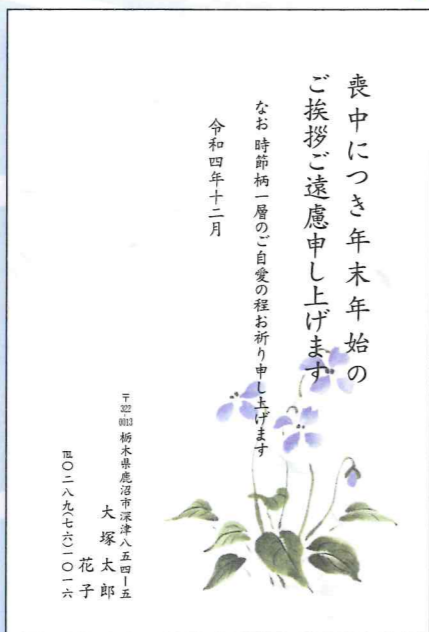 喪中につき年末年始の
ご挨拶ご遠慮申し上げます
なお 時節柄一層のご自愛の程お祈り申し上げます
令和四年十二月
〒322-0013 栃木県鹿沼市深津八五四ー五
大塚太郎
花子
℡〇二八九(七六)一〇一六